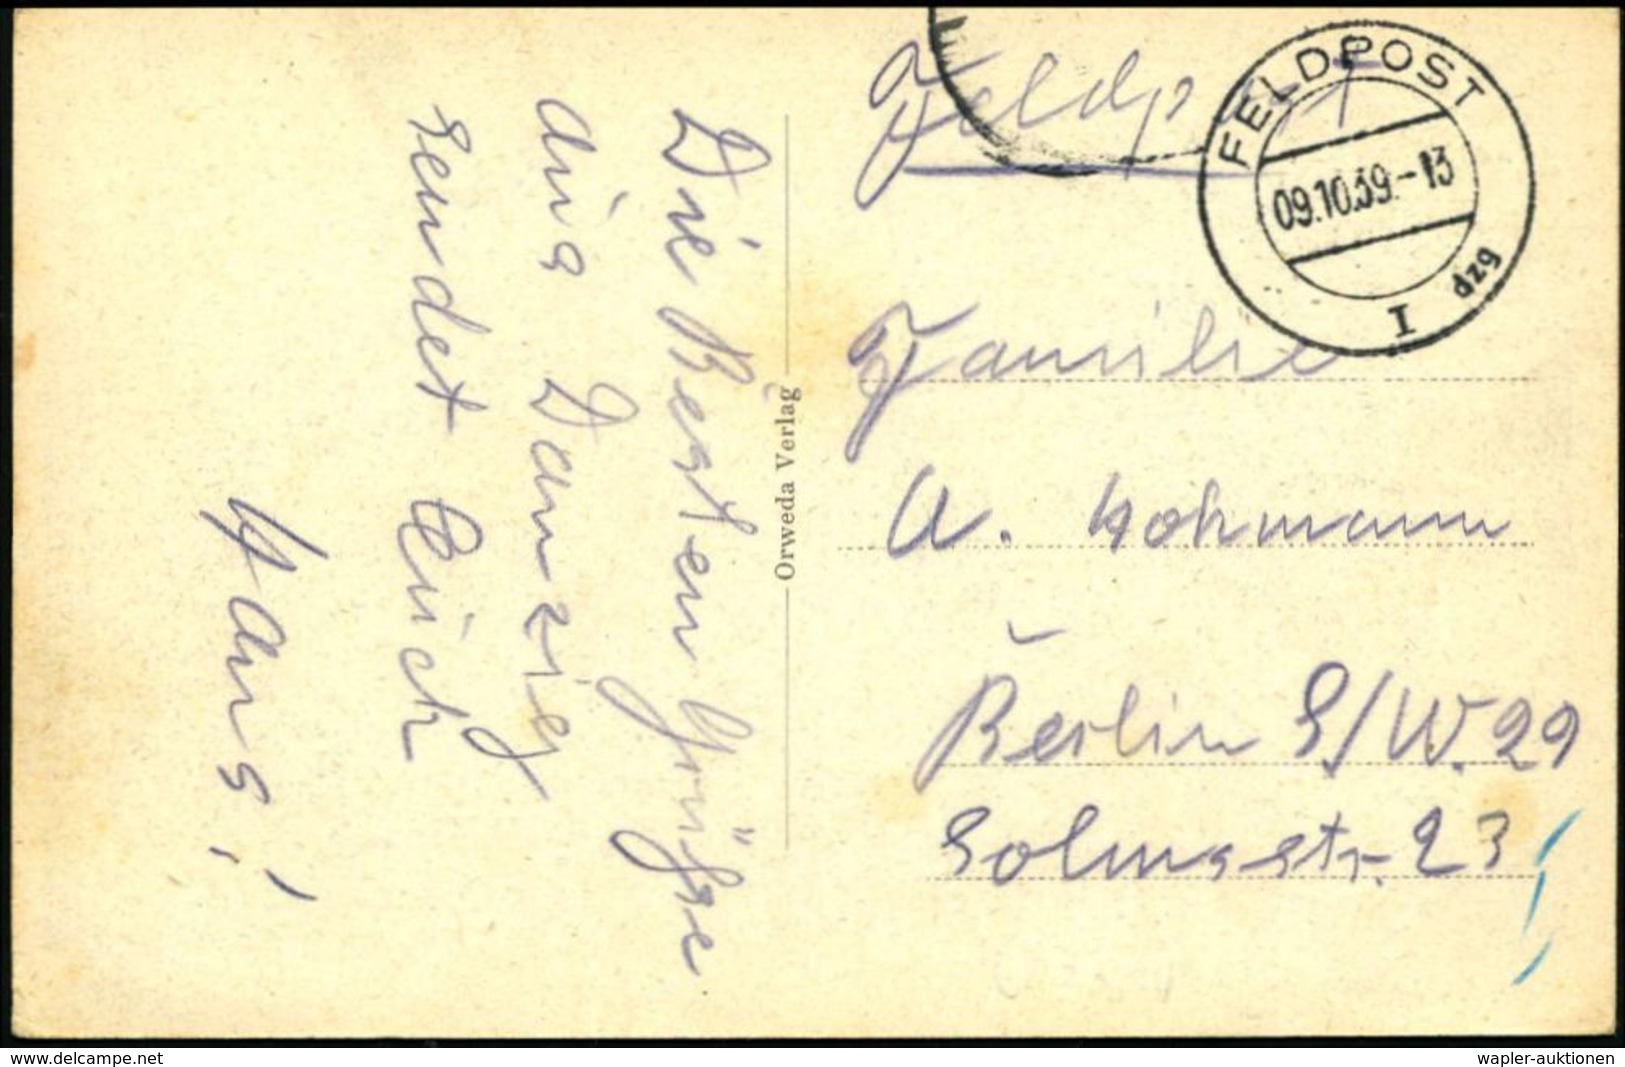 Die Besten Grüße
aus Danzig
sendet Euch
Hans!
Orweda Verlag
Feldpost
FELDPOST
09.10.39.-13
I
dzg
Familie
A. Hohmann
Berlin S/W.29
Solmsstr. 23
www.delcampe.net
wapler-auktionen